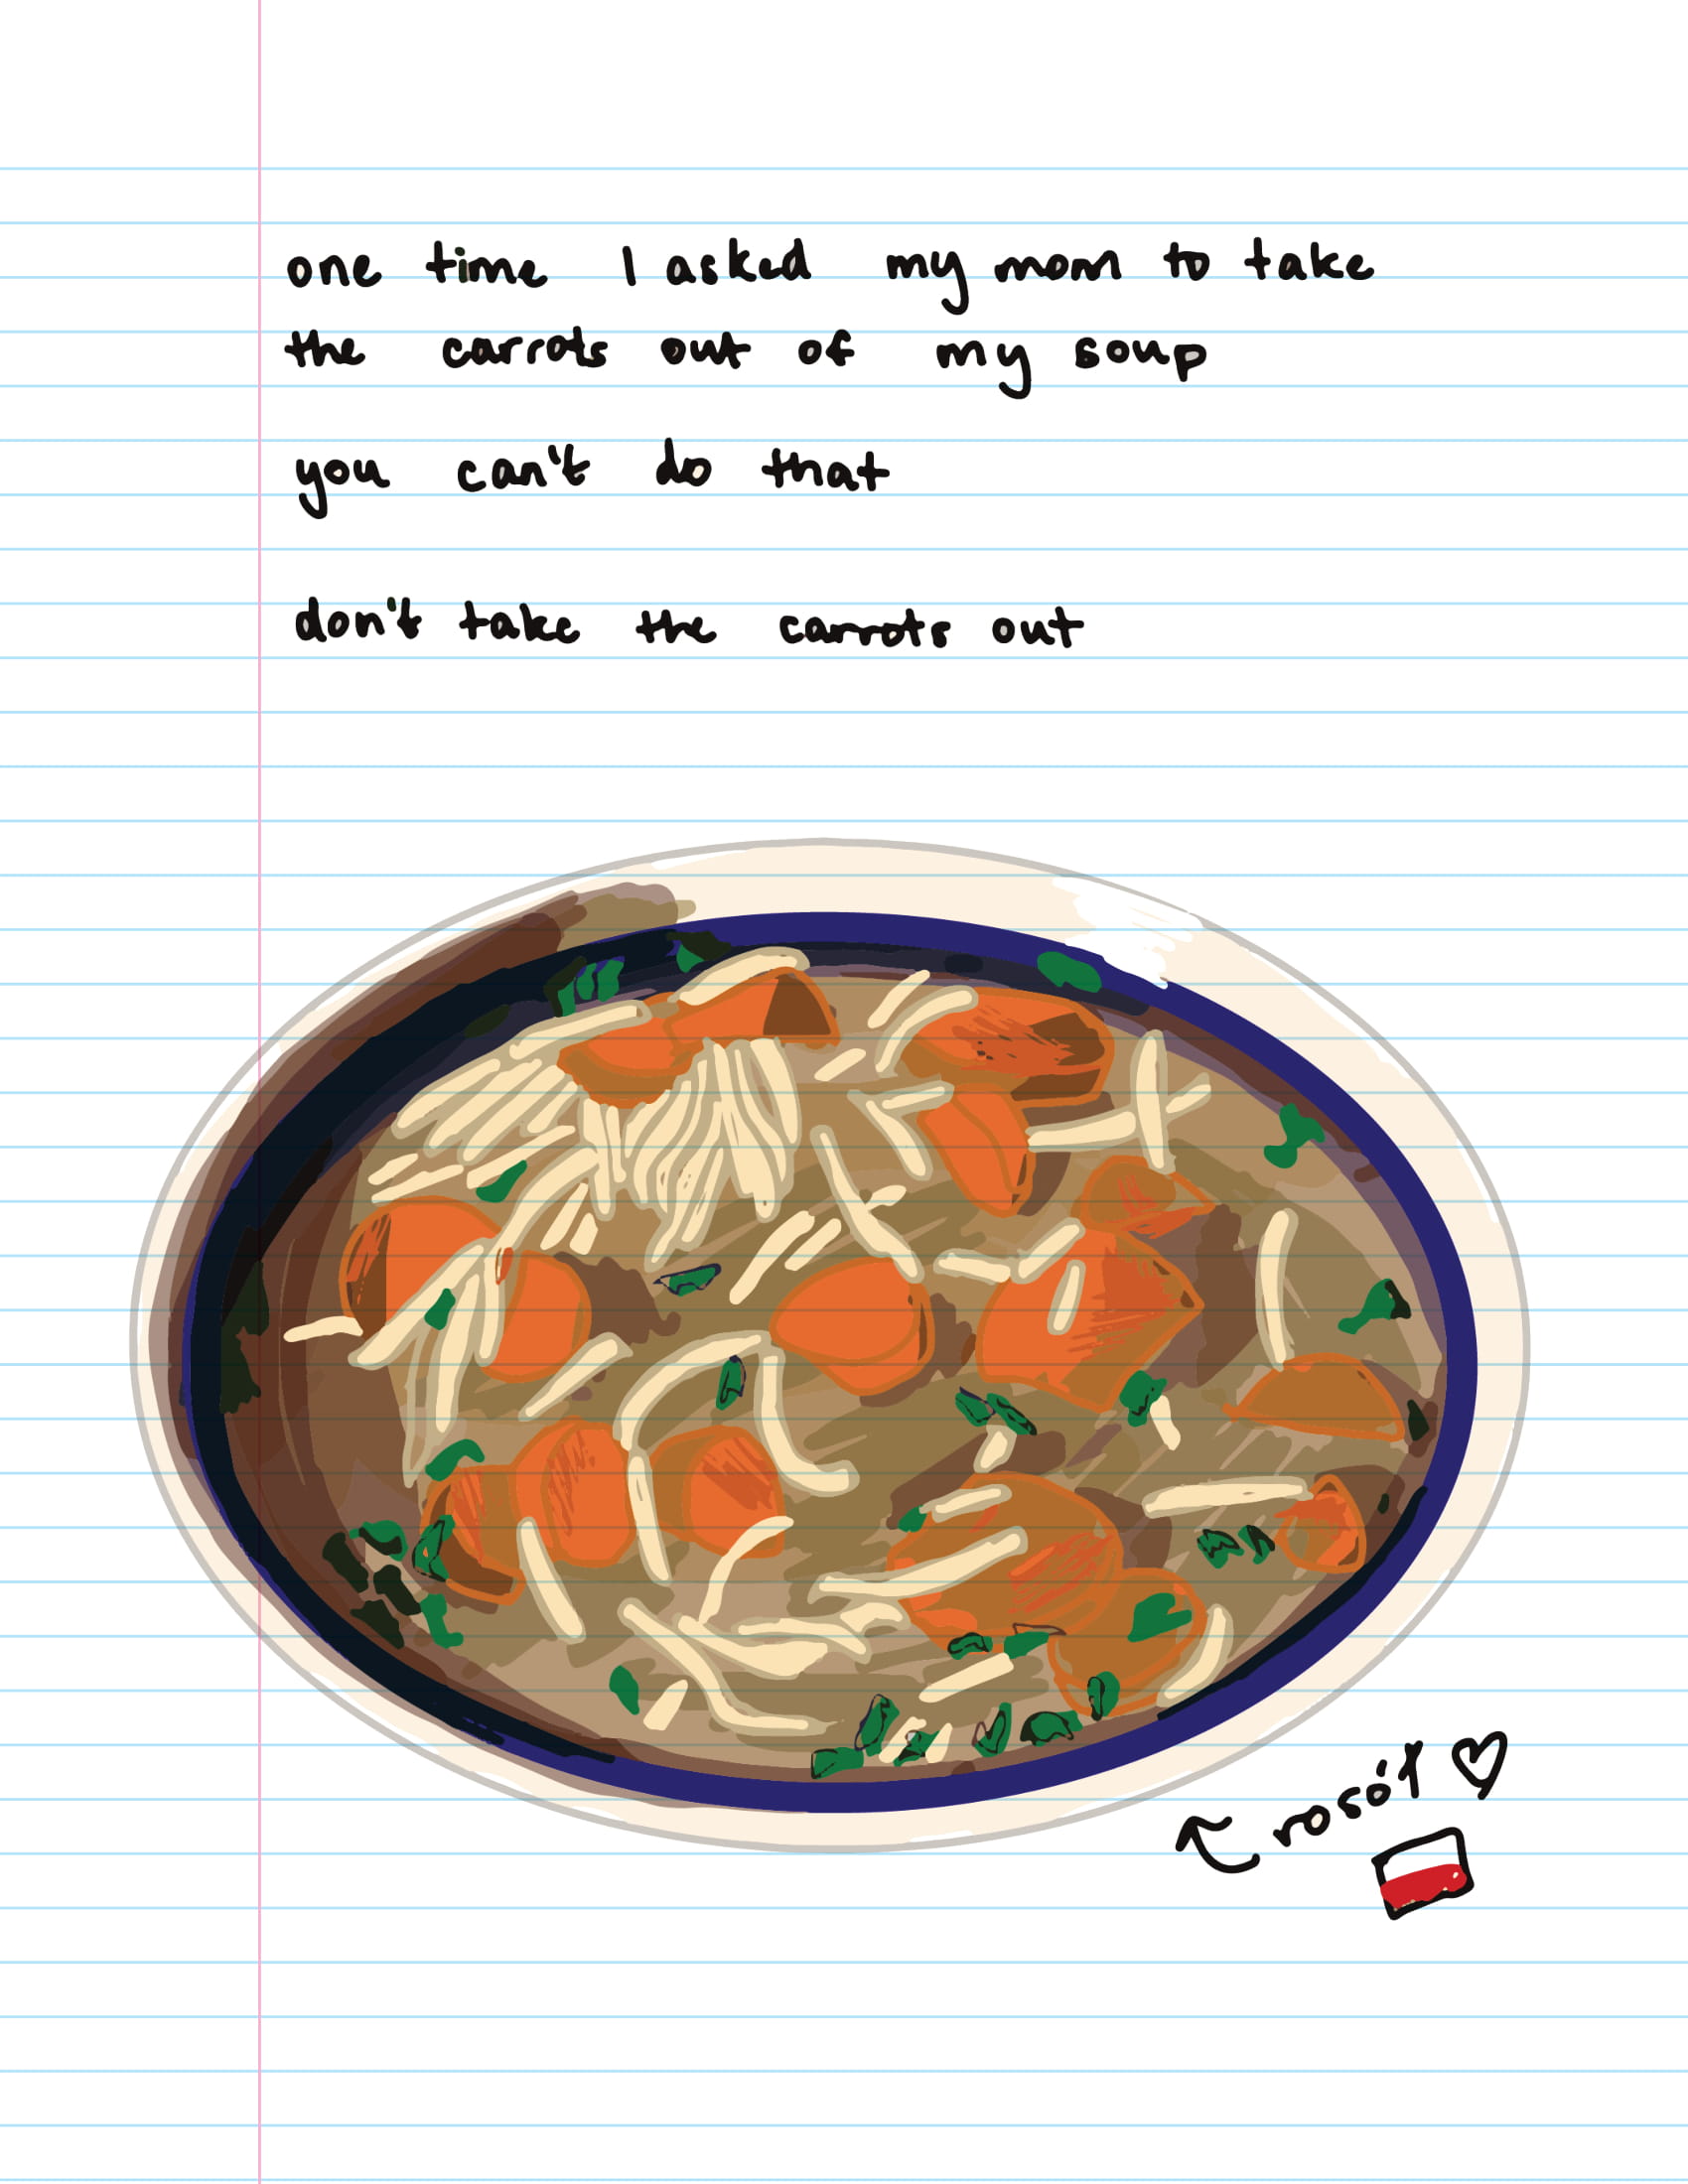 one time I asked my mom to take
the carrots out of my soup
you can't do that
don't take the carrots out
rosół